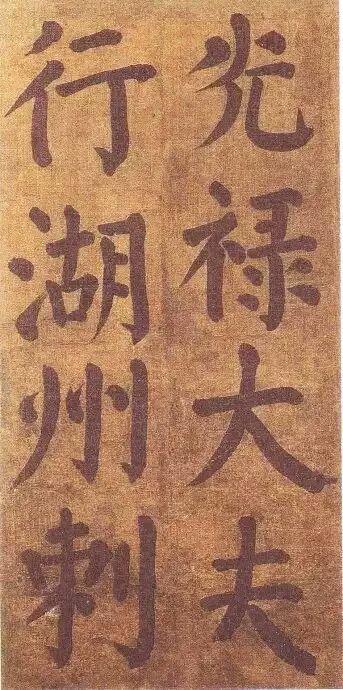 光禄大夫
行湖州刺